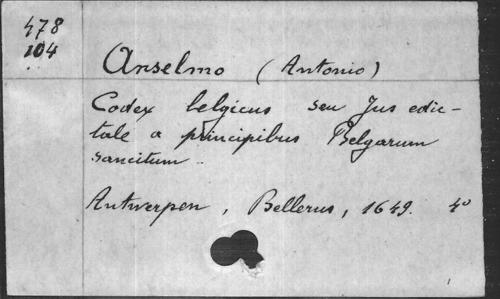 478
104
Anselmo (Antonio)
Codex belgicus seu Jus edic-
tale a principibus Belgarum
sancitum..
Antwerpen, Bellerus, 1649. 4º